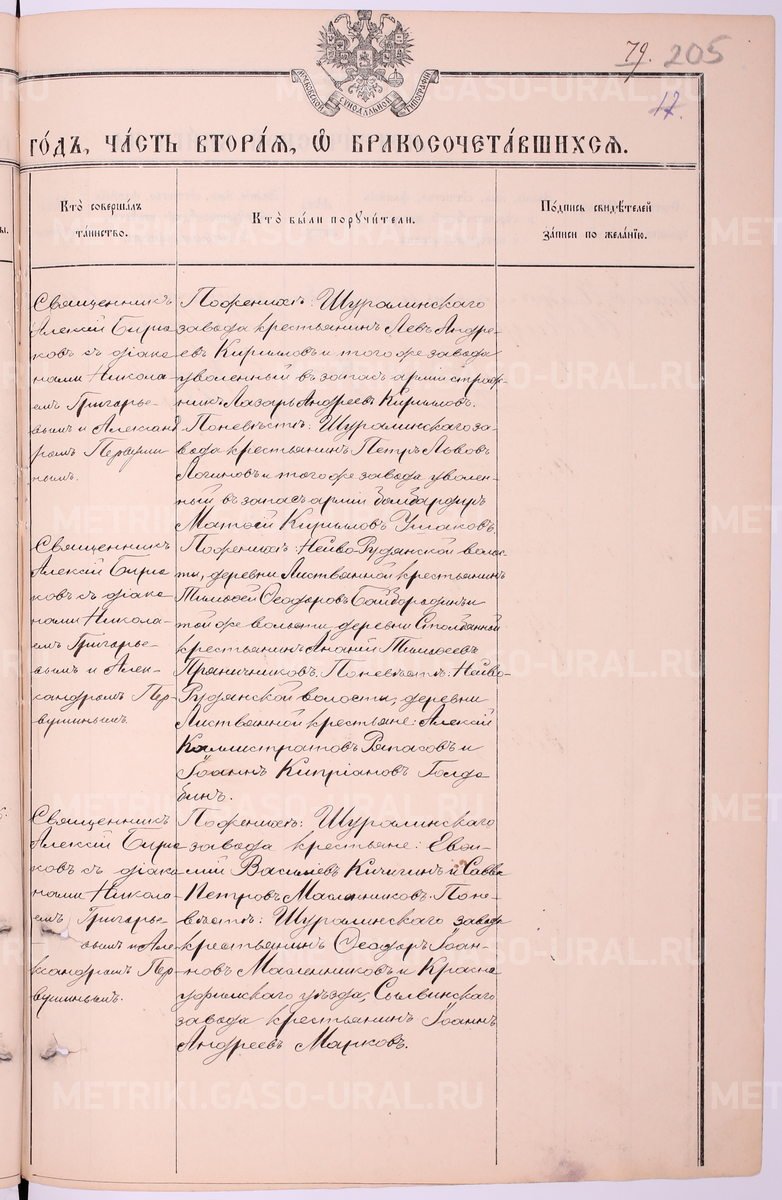 79. 205
17.
МОСКОВСКОЙ СѴНОДАЛЬНОЙ ТИПОГРАФІИ
го́дъ, ча́сть втора́я, ѡ҆ бракосочета́вшихся.
Кто̀ соверша́лъ та́инство.
Кто̀ бы́ли поручи́тели.
По́дпись свидѣ́телей за́писи по жела́нїю.
Священникъ
Алексій Бирю
ковъ съ діако
нами Никола
емъ Григорье
вымъ и Алексан
дромъ Первуши
нымъ.
По женихѣ: Шуралинскаго
завода крестьянинъ Левъ Андре
евъ Кирилловъ и того же завода
уволенный въ запасъ арміи строе
никъ Лазарь Андреевъ Кирилловъ.
По невѣстѣ: Шуралинскаго за
вода крестьянинъ Петръ Львовъ
Логиновъ и того же завода уволен
ный въ запасъ арміи бомбардиръ
Матѳей Кирилловъ Ушаковъ.
Священникъ
Алексій Бирю
ковъ съ діако
нами Никола
емъ Григорье
вымъ и Алек
сандромъ Пер
вушинымъ.
По женихѣ: Нейво-Рудянской волос
ти, деревни Листвянной крестьянинъ
Тимоѳей Ѳеодоровъ и
той же волости деревни Столбянной
крестьянинъ Ананій Тимоѳеевъ
Пряничниковъ. По невѣстѣ: Нейво-
Рудянской волости, деревни
Листвянной крестьяне: Алексій
Каллистратовъ и
Іоаннъ Кипріановъ Голдо
бинъ.
Священникъ
Алексій Бирю
ковъ съ діако
нами Никола
емъ Григорье
вымъ и Але
ксандромъ Пер
вушинымъ.
По женихѣ: Шуралинскаго
завода крестьяне: Евѳи
мій Василіевъ Кичигинъ и Савва
Петровъ Масленниковъ. По не
вѣстѣ: Шуралинскаго завода
крестьянинъ Ѳеодоръ Іоан
новъ Масленниковъ и Красно
уфимскаго уѣзда, Сылвинскаго
завода крестьянинъ Іоаннъ
Андреевъ Марковъ.
METRIKI.GASO-URAL.RU